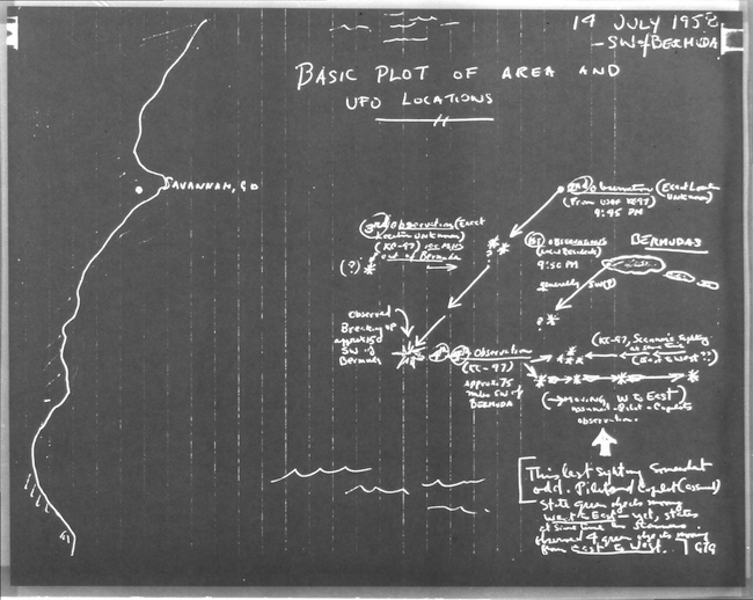 14 JULY 195
- SW of BERMUDA
BASIC PLOT OF AREA AND
UFO LOCATIONS
SAVANNAH,
2nd Observation (Exact Location
Unknown)
(From USAF KC-97)
9:45 PM
3rd Observation (Exact
Location Unknown)
(KC-97)
out of Bermuda
(?)
1st OBSERVATION
9:50 PM
generally SW(?)
BERMUDAS
Observed
Breaking up
approx 150
SW of
Bermuda
Observation
(KC-97)
approx. 75
miles SW of
BERMUDA
(KC-97, Scanner's Sighting
at same time)
(East to West??)
(→ Moving W to East)
assumed - Pilot - Copilots
observation.
This last sighting Somewhat
odd. Pilot and Copilot (assumed)
State green objects moving
West to East - yet, states
at same time the scanners
observed 4 green objects moving
from East to West.